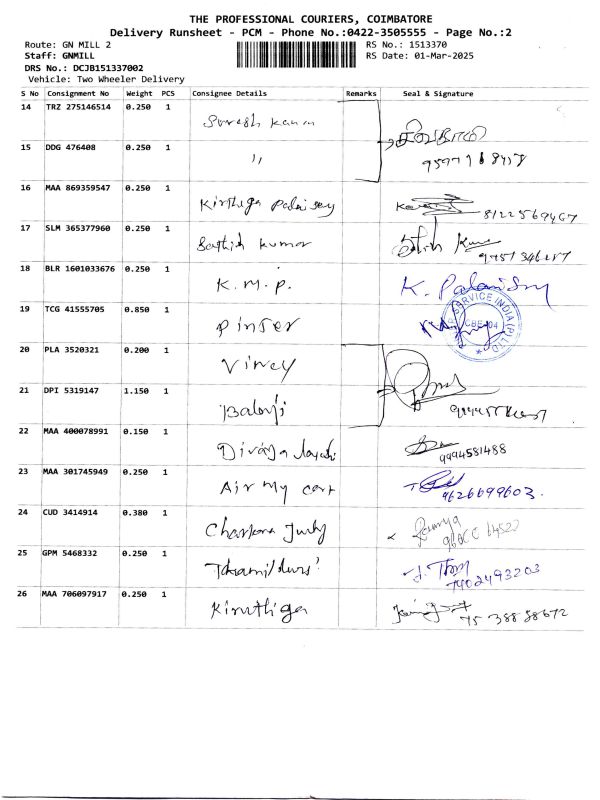 THE PROFESSIONAL COURIERS, COIMBATORE
Delivery Runsheet - PCM - Phone No.:0422-3505555 - Page No.:2
Route: GN MILL 2 RS No.: 1513370
Staff: GNMILL RS Date: 01-Mar-2025
DRS No.: DCJB151337002
Vehicle: Two Wheeler Delivery
S No Consignment No Weight PCS Consignee Details Remarks Seal & Signature
14 TRZ 275146514 0.250 1 Suresh Kannn
15 DDG 476408 0.250 1 "
16 MAA 869359547 0.250 1 Kirthiga Palnisay 8122569467
17 SLM 365377960 0.250 1 Sathish kumar
18 BLR 1601033676 0.250 1 K.M.P. K. Palanismy
19 TCG 41555705 0.850 1 SERVICE INDIA (P) LTD CBE-04
20 PLA 3520321 0.200 1 Viney
21 DPI 5319147 1.150 1 Balaji
22 MAA 400078991 0.150 1 Divaya 9994581488
23 MAA 301745949 0.250 1 Air My cart 9626699603.
24 CUD 3414914 0.380 1
25 GPM 5468332 0.250 1 7402493203
26 MAA 706097917 0.250 1 Kiruthiga 7538858672